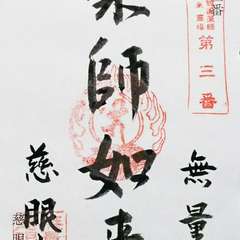 番
第三番
無量
薬師如来
慈眼
慈眼